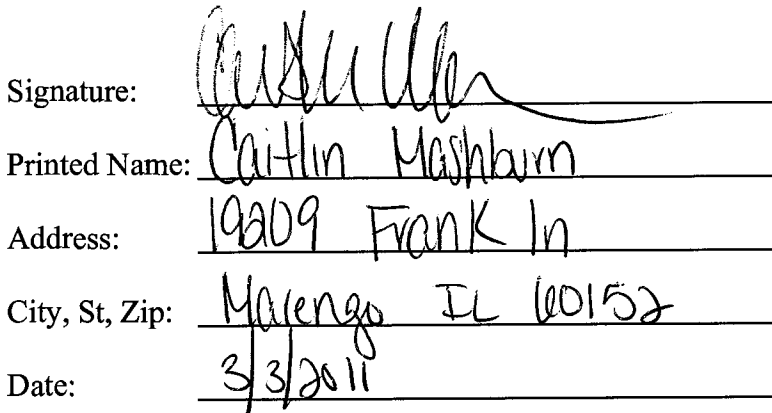 Signature:
Printed Name: Caitlin Mashburn
Address: 19209 Frank ln
City, St, Zip: Marengo IL 60152
Date: 3/3/2011